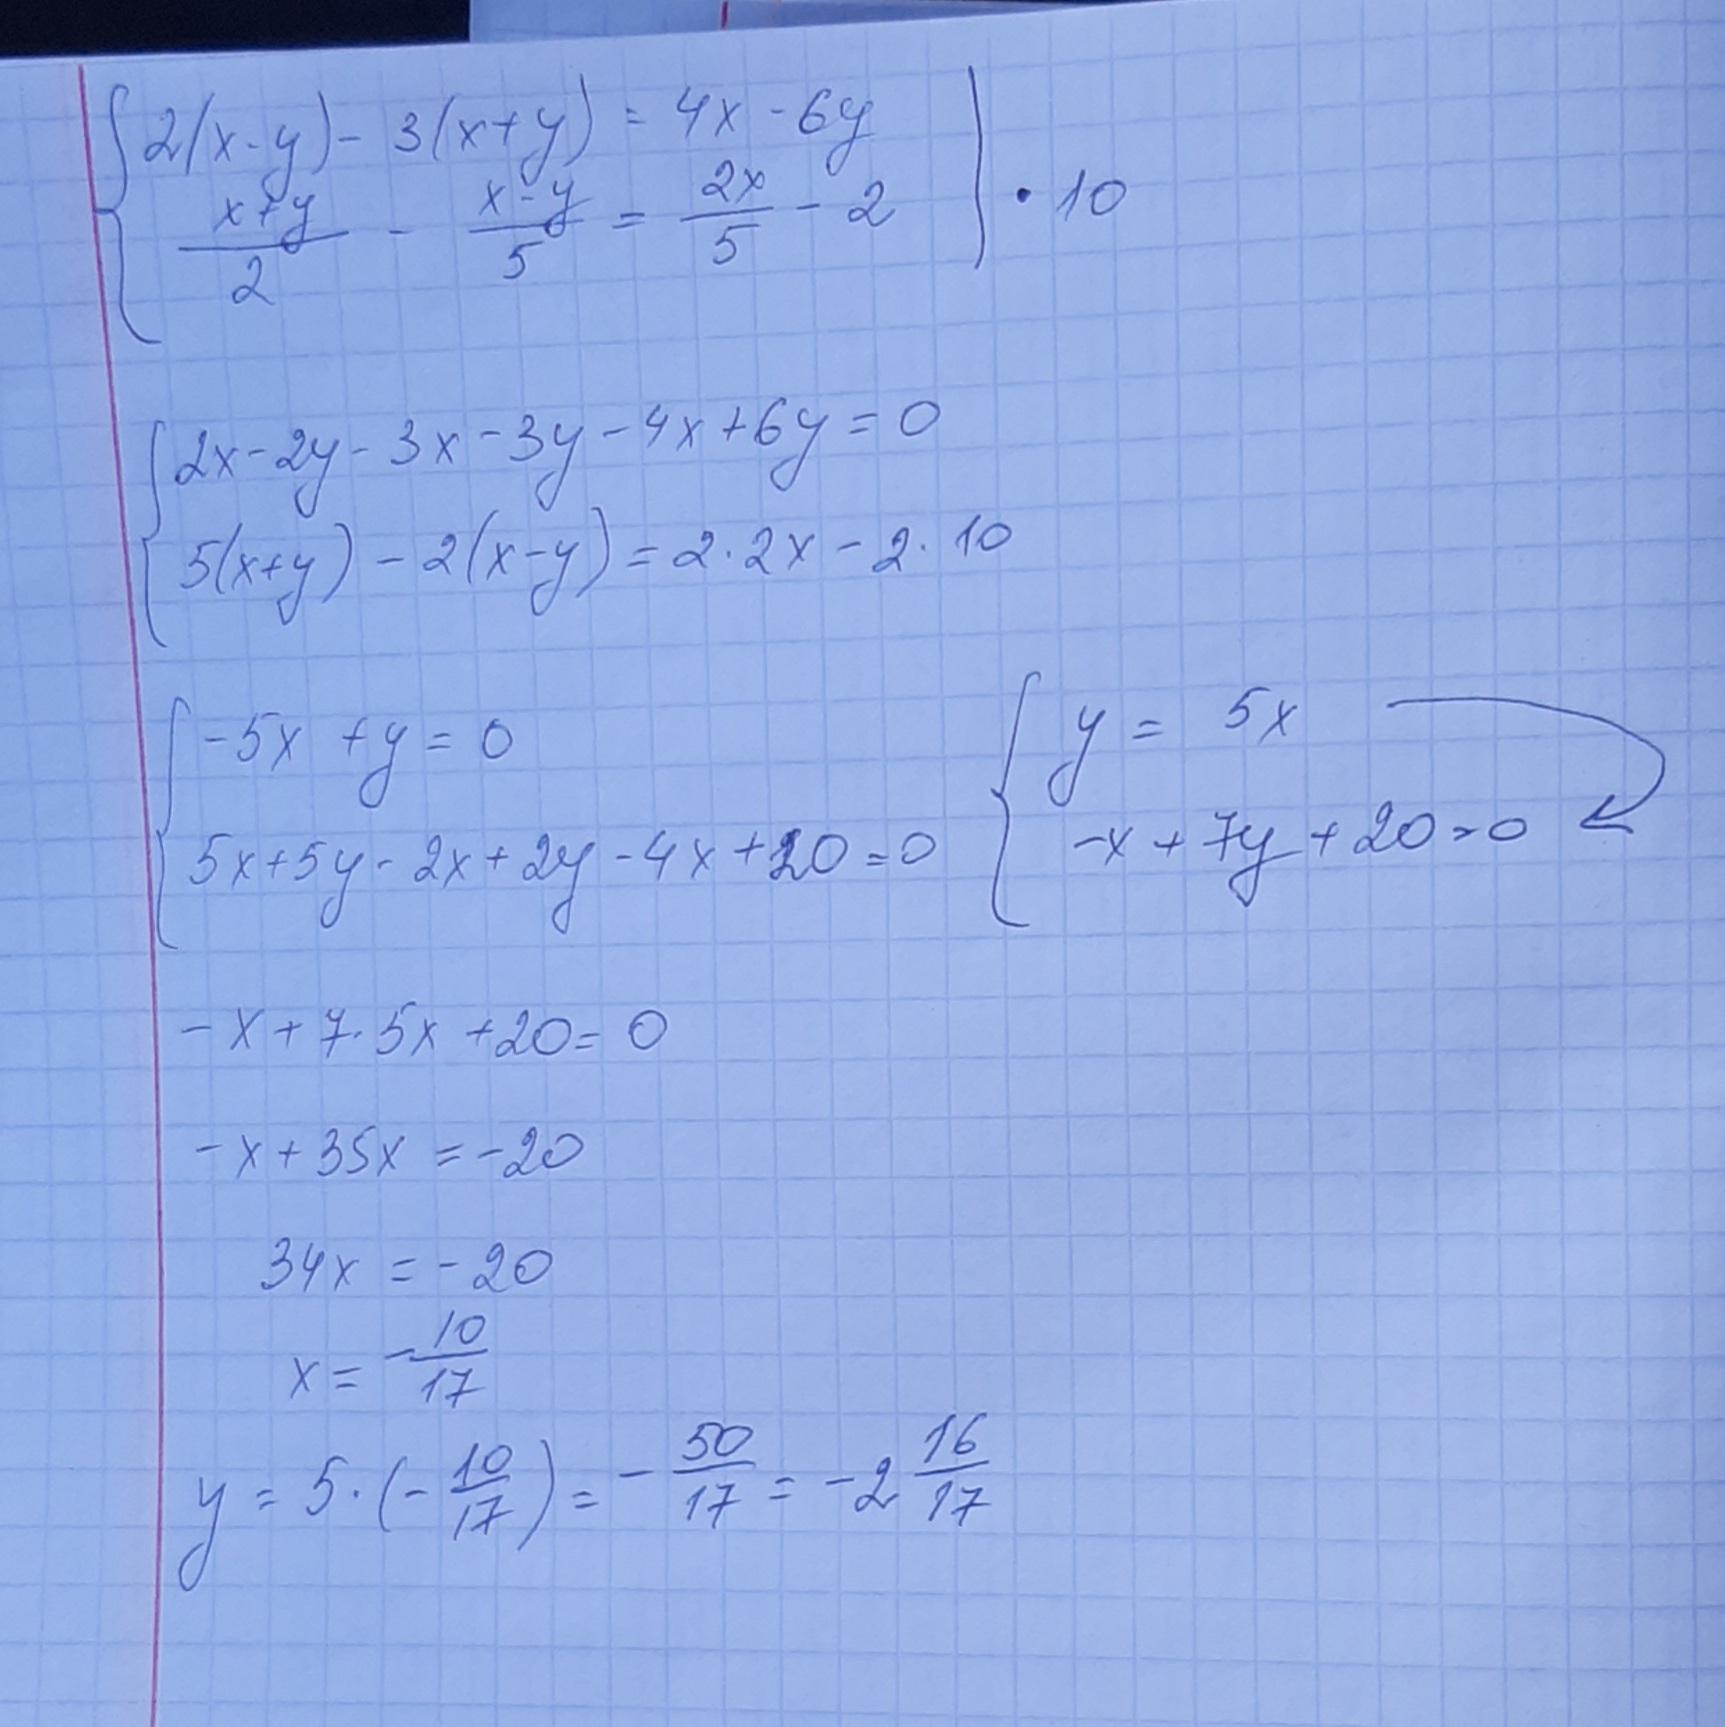 2(x-y) - 3(x+y) = 4x - 6y
(x+y)/2 - (x-y)/5 = 2x/5 - 2 | · 10
2x - 2y - 3x - 3y - 4x + 6y = 0
5(x+y) - 2(x-y) = 2·2x - 2·10
-5x + y = 0
5x + 5y - 2x + 2y - 4x + 20 = 0
y = 5x
-x + 7y + 20 = 0
-x + 7·5x + 20 = 0
-x + 35x = -20
34x = -20
x = -10/17
y = 5·(-10/17) = -50/17 = -2 16/17